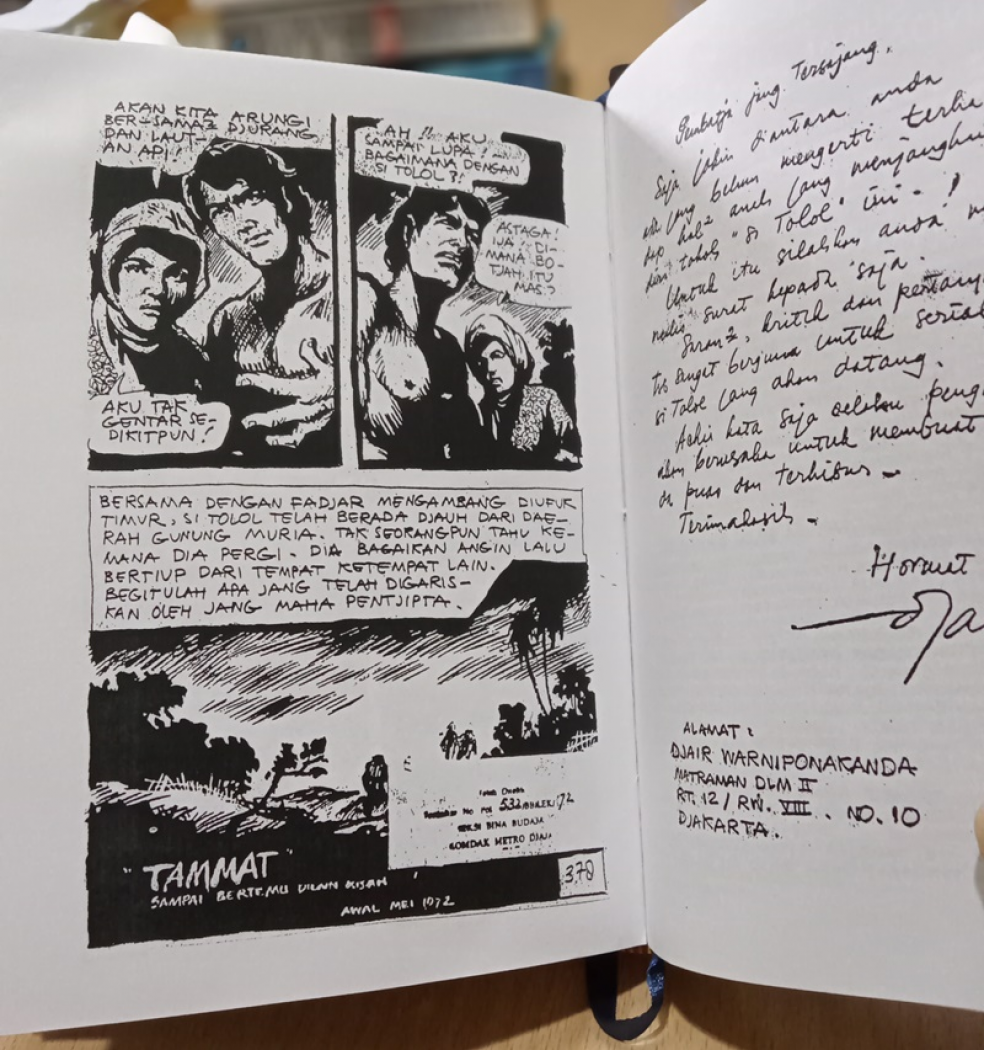 AKAN KITA ARUNGI
BER-SAMA2 DJURANG
DAN LAUT-
AN API!
AKU TAK
GENTAR SE-
DIKITPUN!
AH!! AKU
SAMPAI LUPA!
BAGAIMANA DENGAN
SI TOLOL?!
ASTAGA!
IJA DI-
MANA BO-
TJAH ITU
MAS?
BERSAMA DENGAN FADJAR MENGAMBANG DIUFUK
TIMUR, SI TOLOL TELAH BERADA DJAUH DARI DAE-
RAH GUNUNG MURIA. TAK SEORANGPUN TAHU KE-
MANA DIA PERGI. DIA BAGAIKAN ANGIN LALU
BERTIUP DARI TEMPAT KETEMPAT LAIN.
BEGITULAH APA JANG TELAH DIGARIS-
KAN OLEH JANG MAHA PENTJIPTA.
No Pol 532/
SEKSI BINA BUDAJA
KOMDAK METRO DJAJA
"TAMMAT"
SAMPAI BERTEMU KISAH
AWAL MEI 1972
370
Pembatja jang Tersajang,
Saja jakin diantara anda
ada jang belum mengerti
hal2 aneh jang
dari tokoh "si Tolol" ini - !
Untuk itu silahkan anda
surat kepada saja.
Saran2, kritik dan
sangat berguna untuk
si Tolol jang akan datang.
Achir kata saja selaku
akan berusaha untuk membuat
puas dan terhibur -
Terimakasih -
Hormat
ALAMAT :
DJAIR WARNIPONAKANDA
MATRAMAN DLM II
RT. 12 / RW. VIII . NO. 10
DJAKARTA.